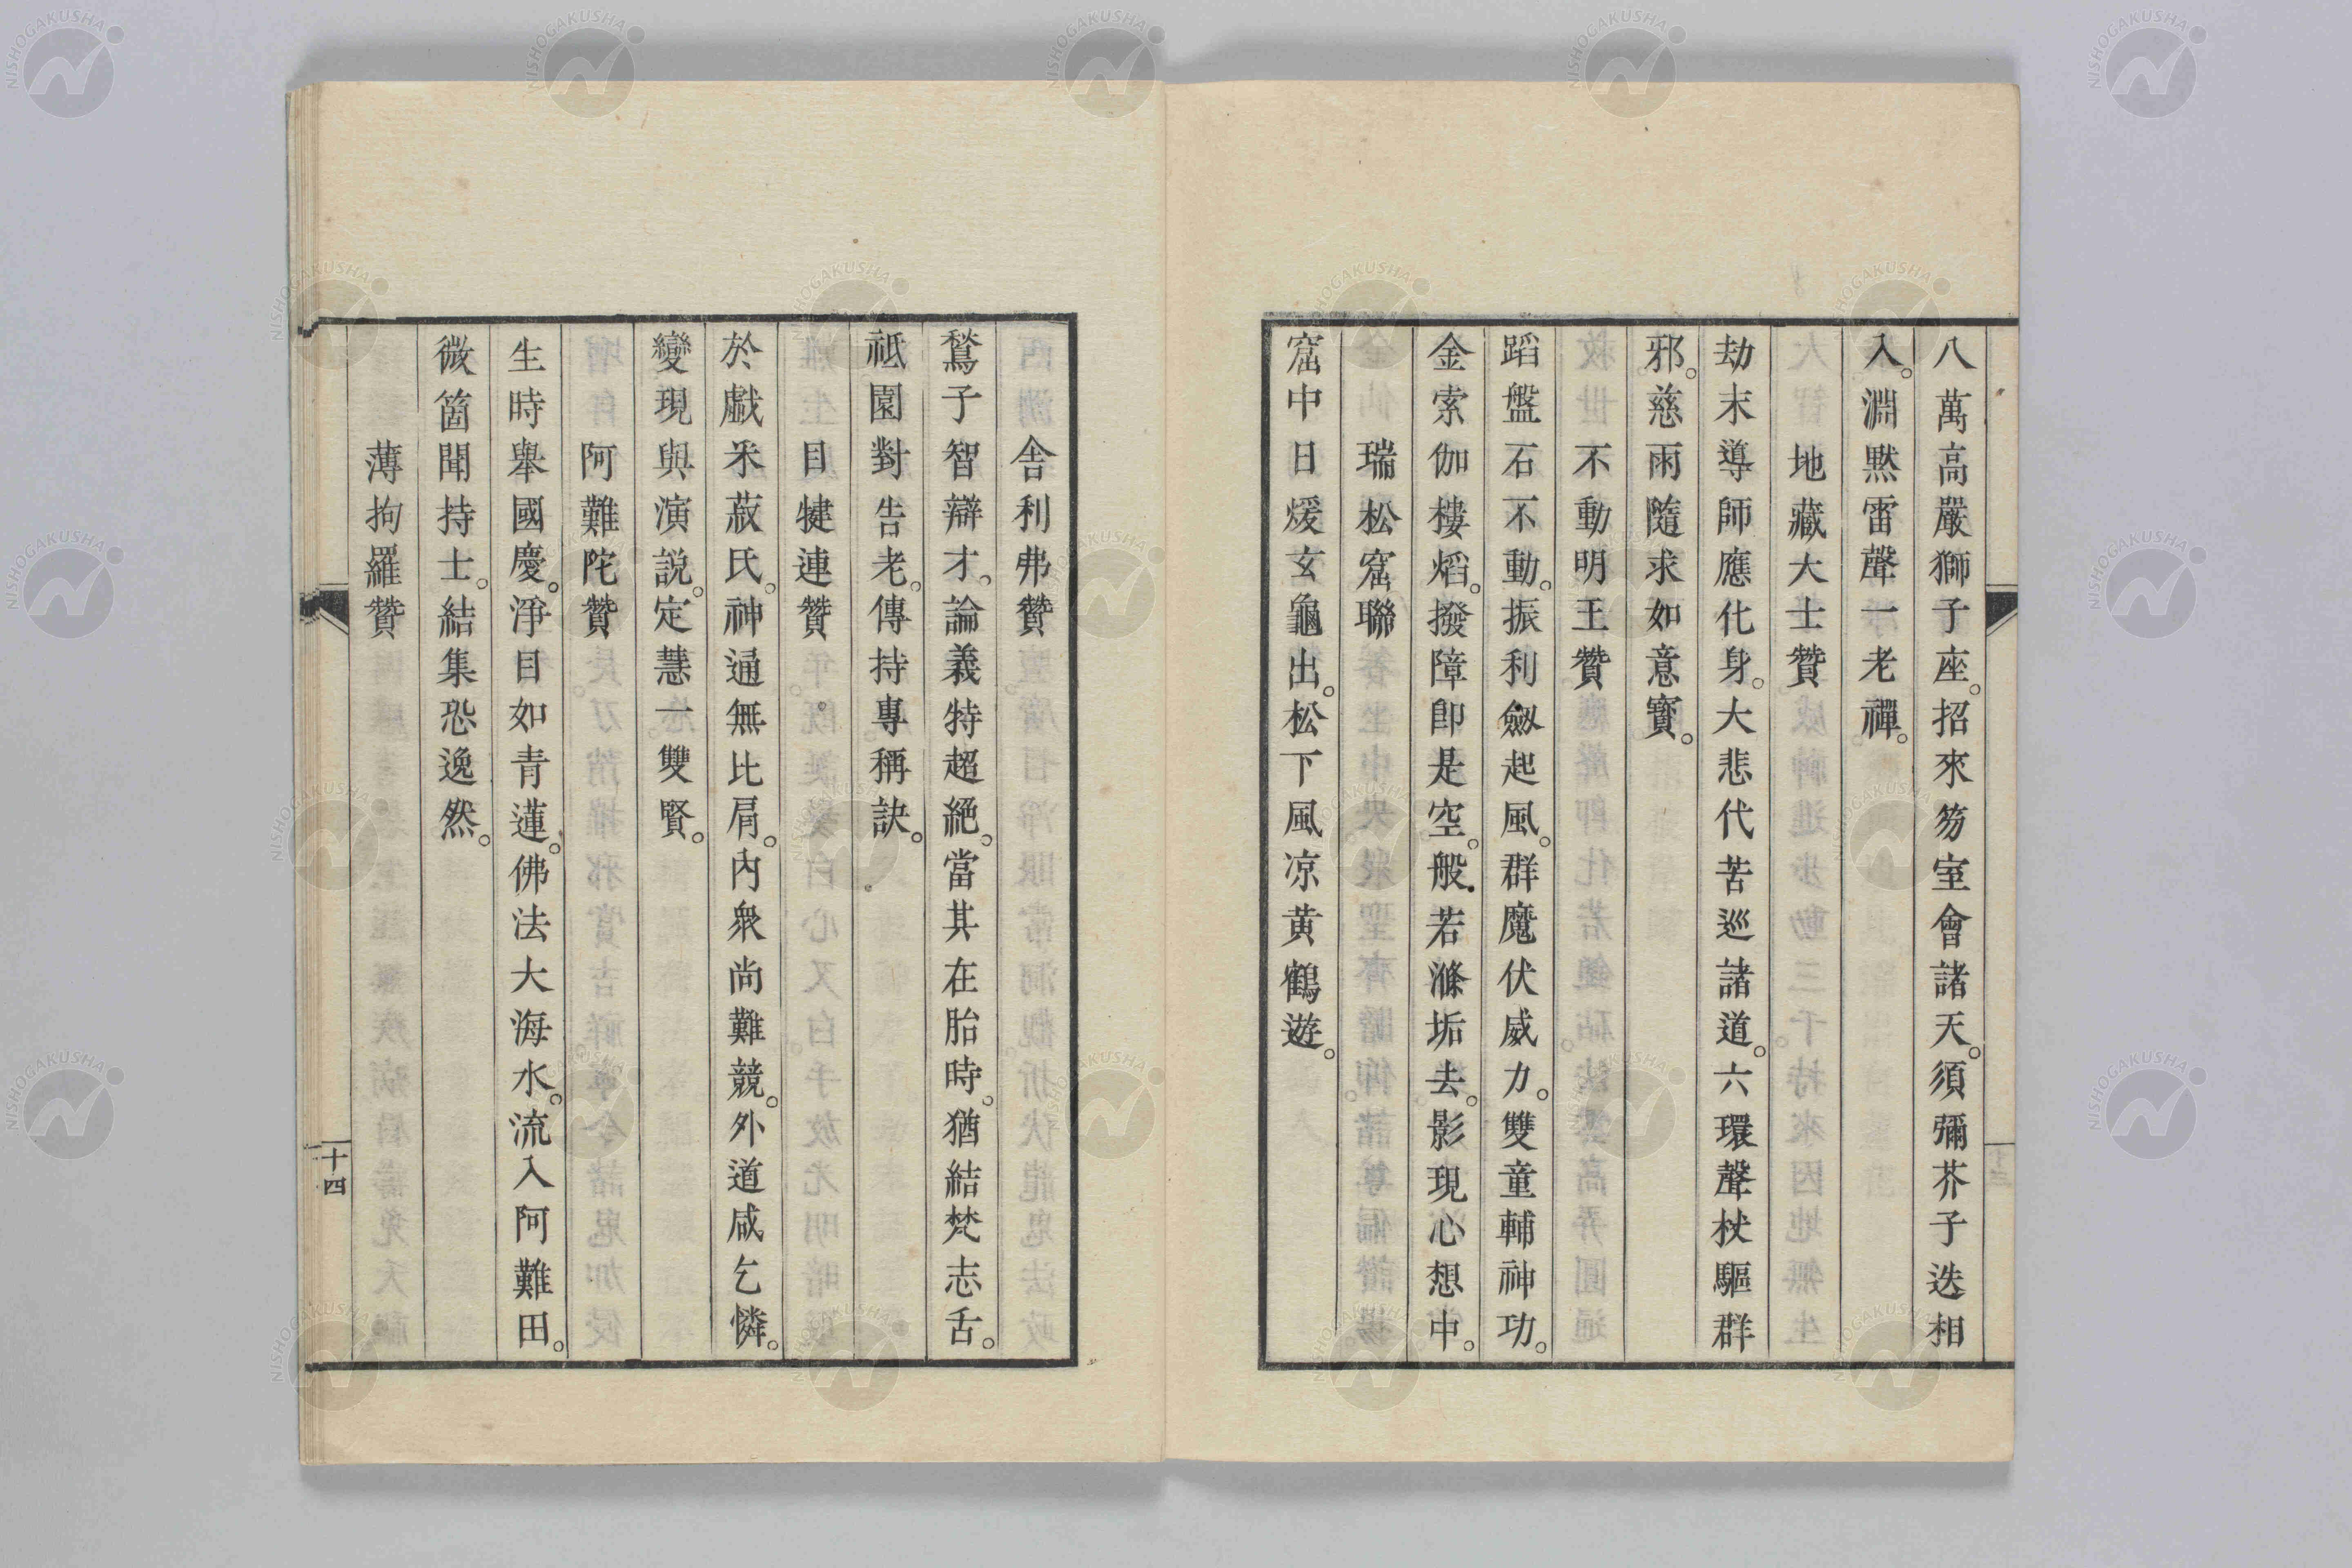 八萬高嚴獅子座。招來笏室會諸天。須彌芥子迭相
入。淵默雷聲一老禪。
地藏大士贊
劫末導師應化身。大悲代苦巡諸道。六環聲杖驅群
邪。慈雨隨求如意寶。
不動明王贊
蹈盤石不動。振利劔起風。群魔伏威力。雙童輔神功。
金索伽樓熖。撥障卽是空。般若滌垢去。影現心想中。
瑞松窟聯
窟中日煖玄龜出。松下風凉黃鶴遊。
舍利弗贊
鶖子智辯才。論義特超絕。當其在胎時。猶結梵志舌。
祗園對告老。傳持專稱訣。
目犍連贊
於戲釆菽氏。神通無比肩。內衆尚難競。外道咸乞憐。
變現與演說。定慧一雙賢。
阿難陀贊
生時舉國慶。淨目如青蓮。佛法大海水。流入阿難田。
微箇聞持士。結集恐逸然。
薄拘羅贊
十四
NISHOGAKUSHA